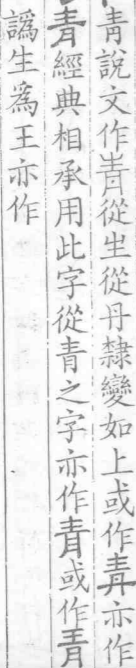 青說文作靑從生從丹隸變如上或作𤯞亦作
青經典相承用此字從青之字亦作青或作
譌生爲王亦作